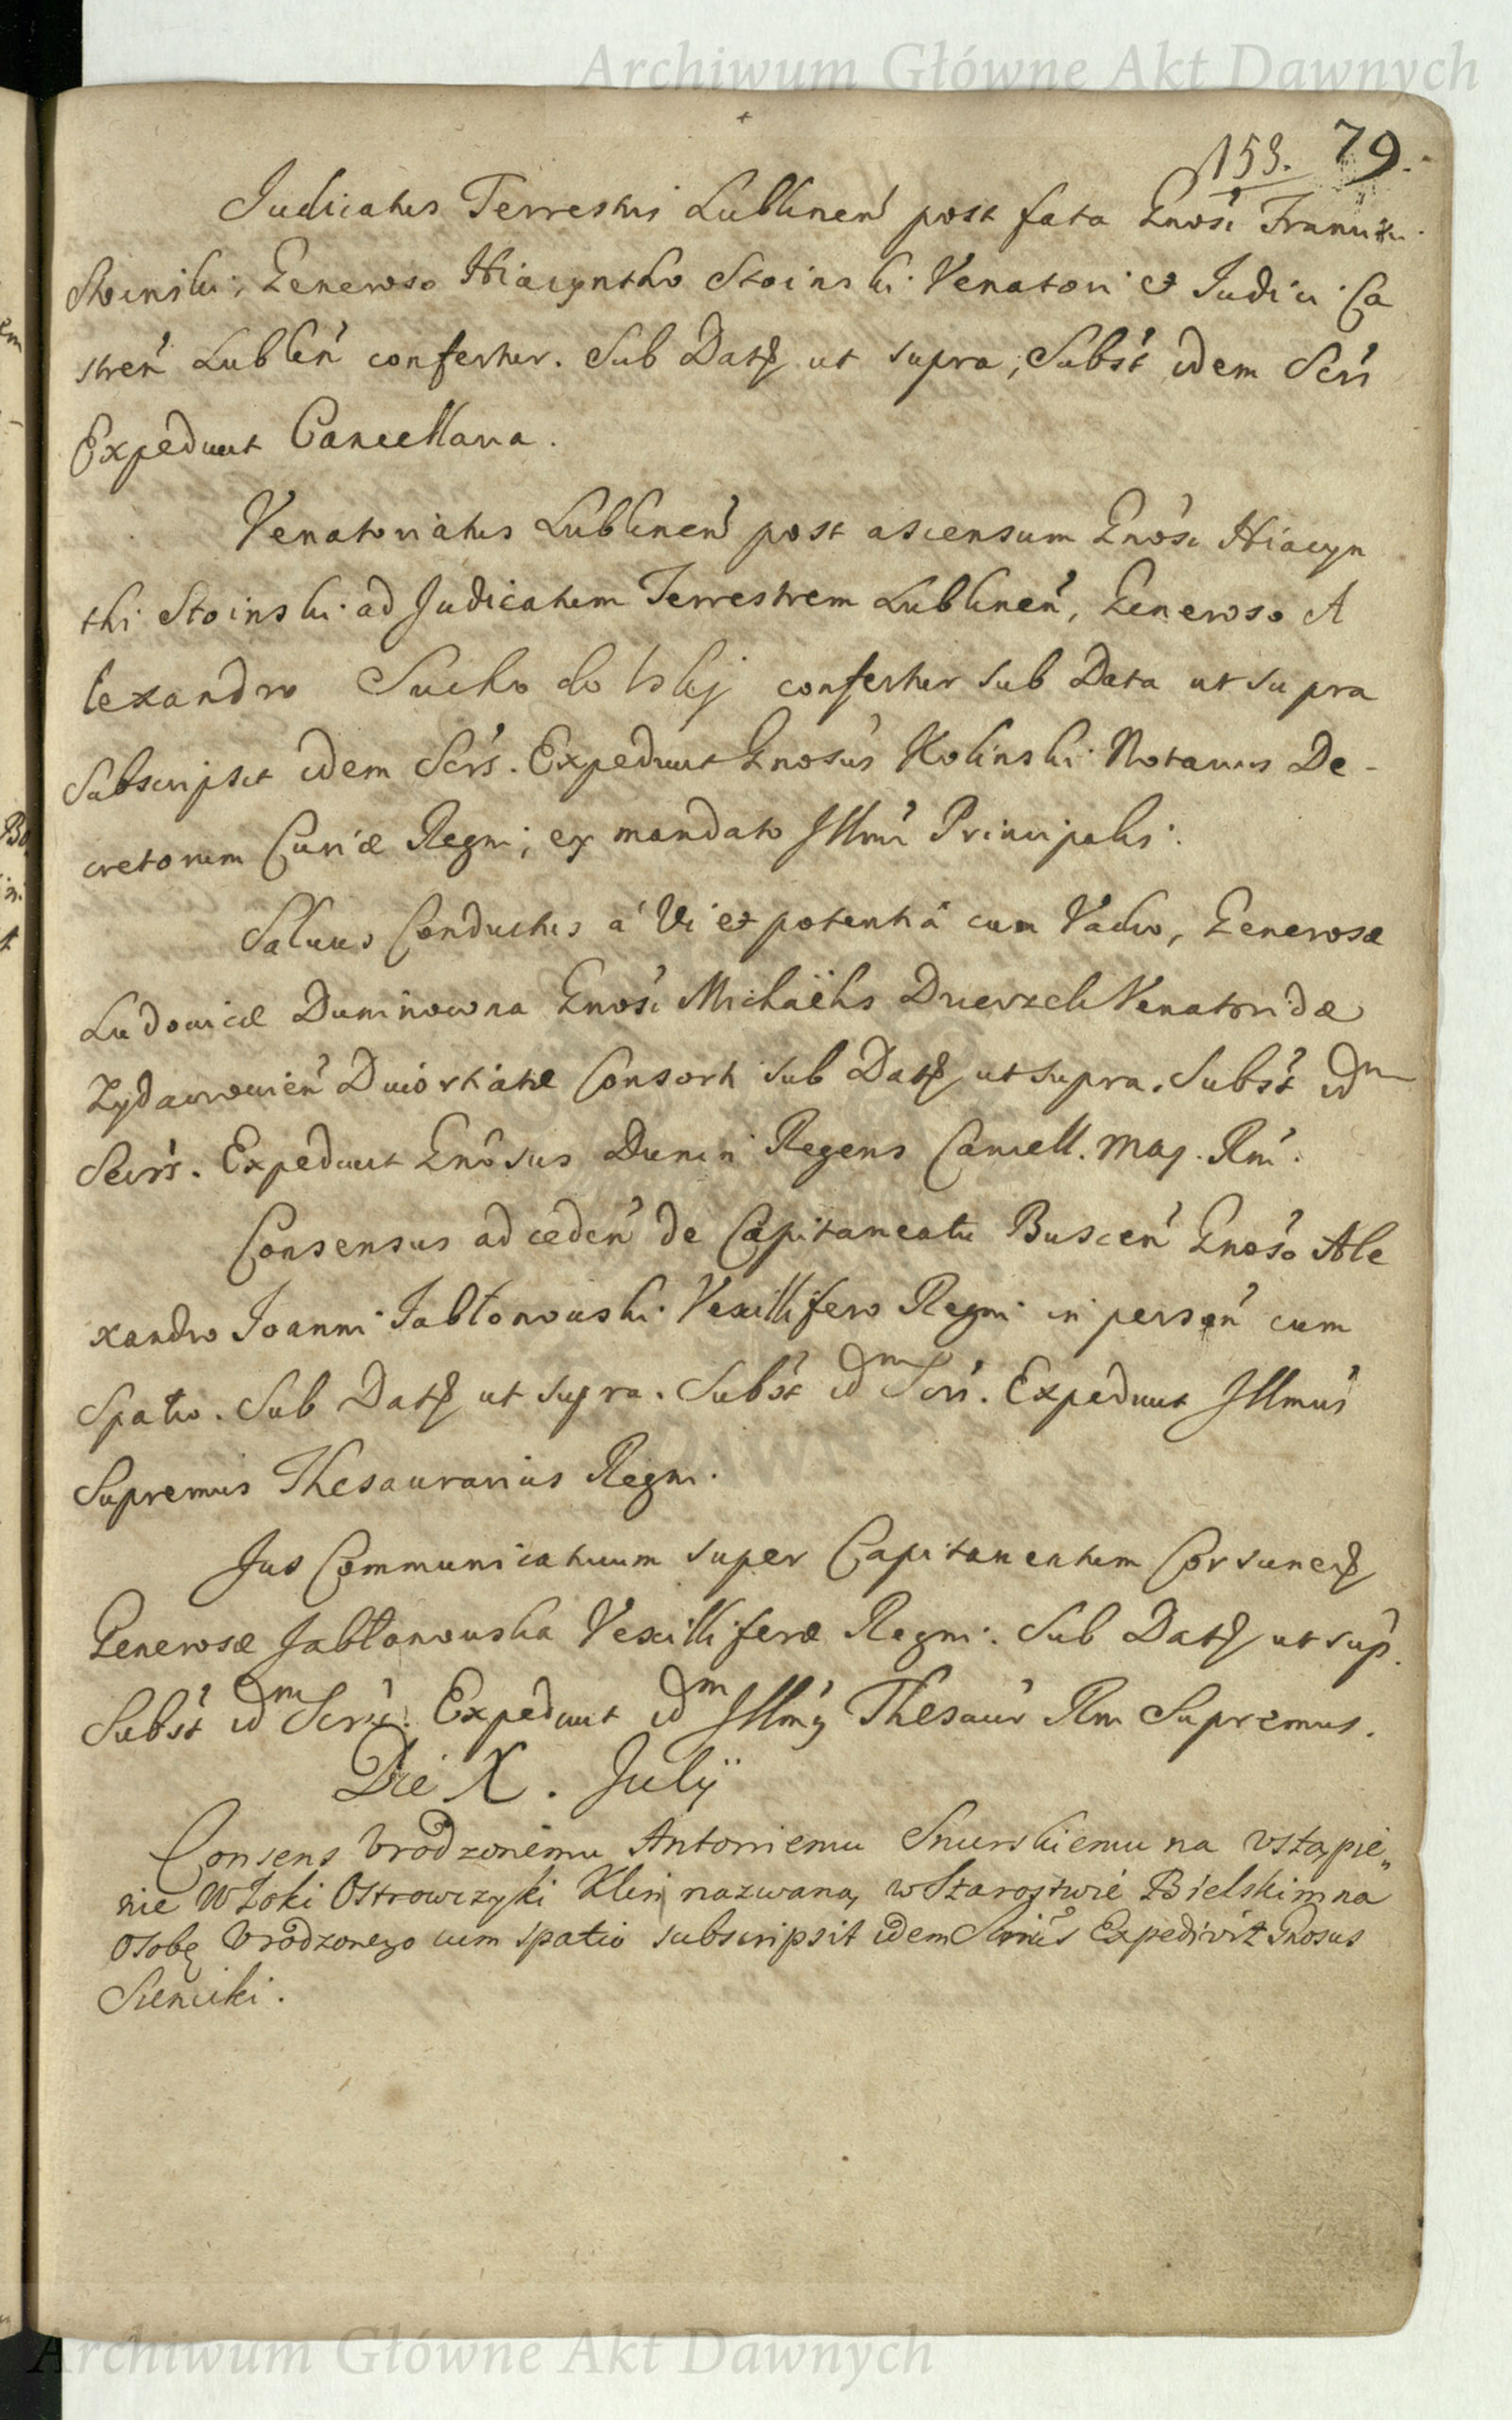 Archiwum Główne Akt Dawnych
153. 79.
Judicatus Terrestris Lublinen̕ post fata Gnosi Francisci
Stoinski, Generoso Hiacyntho Stoinski Venatori et Judici Ca
stren̕ Lublen̕ confertur. Sub Datt ut supra, Subst̕ idem Scrs̕
Expedivit Cancellaria.
Venatoriatus Lublinen̕ post ascensum Gnosi Hiacyn
thi Stoinski ad Judicatum Terrestrem Lublinen̕, Generoso A
lexandro Suchodolskij confertur sub Data ut supra
Subscripsit idem Scrs̕. Expedivit Gnosus Kolinski Notarius De-
cretorum Curiæ Regni, ex mandato Jllmi Principalis.
Salvus Conductus á Vi et potentiâ cum Vadio, Generosæ
Ludovicæ Duninowna Gnosi Michaëlis Dzierzek Venatoridæ
Zydaczowien̕ Consorti sub Datt ut supra. Subst̕ idm
Scrs̕. Expedivit Gnosus Dunin Regens Cancell. Maj. Rni̕.
Consensus ad ceden̕ de Capitaneatu Buscen̕ Gnoso Ale
xandro Joanni Jabłonowski Vexillifero Regni in person̕ cum
Spatio. Sub Datt ut supra. Subst̕ idm Scrs̕. Expedivit Jllmus̕
Supremus Thesaurarius Regni.
Jus Communicativum super Capitaneatum Corsunen̕
Generosæ Jabłonowska Vexilliferæ Regni. Sub Datt ut sup̕.
Subst̕ idm Scrs̕. Expedivit idm Jllmus Thesaur̕ Rni Supremus.
Die X. Julij
Consens Urodzonemu Antoniemu Snarskiemu na ustąpie„
nie Włoki Ostrowczyki Klin nazwaną, w Starostwie Bielskim na
Osobę Urodzonego cum spatio subscripsit idem Scrius̕ Expedivit Gnosus
Sienicki.
Archiwum Główne Akt Dawnych